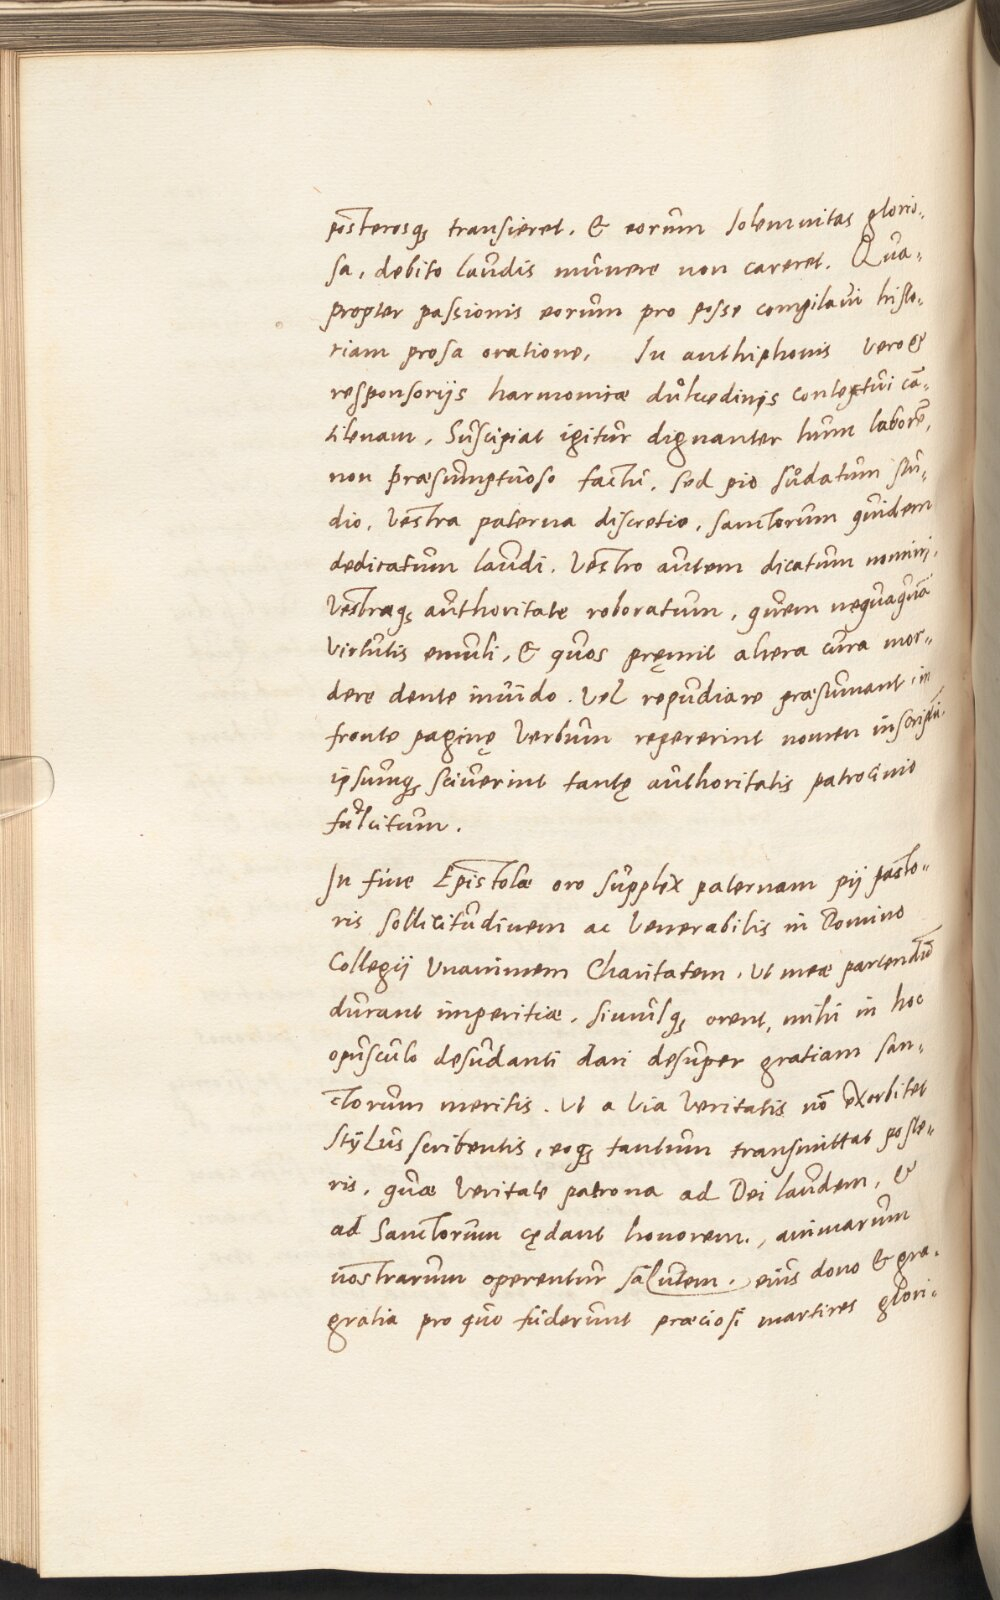 posterosq₃ transieret. & eorum solemnitas glorio-
sa, debito laudis munere non careret. Qua-
propter passionis eorum pro posse compilavi histo-
riam prosa oratione, In anthiphonis vero &
responsorijs harmonicæ dulcedinis contextui cā-
tilenam. Suscipiat igitur dignanter hunc laborē,
non præsumptuoso factū, sed pio sudatum stu-
dio, Vestra paterna discretio, sanctorum quidem
dedicatum laudi. Vestro autem dicatum nomini,
Vestraq₃ authoritate roboratum, quem nequaquā
virtutis emuli, & quos pręmit altera cura mor-
dere dente inuido. Vel repudiare præsumant, in
fronte paginę Verbum repererint nomen inscriptū.
ipsumq₃ sciuerint tantę authoritatis patrocinio
fulcitum.
In fine Epistolæ oro supplex paternam pij pasto-
ris sollicitudinem ac Venerabilis in Domino
Collegij Vnanimem Charitatem. Ut meæ parcendū
durant imperitiæ, simulq₃ orent, mihi in hoc
opusculo desudanti dari desuper gratiam san-
ctorum meritis. Ut a Via Veritatis nō exorbitet
stÿlus scribentis, eoq₃ tantum transmittat poste-
ris, quæ Veritate patrona ad Dei laudem, &
ad Sanctorum cędant honorem., animarum
nostrarum operentur salutem. eius dono & gra-
gratia pro quo fuderunt præciosi martires glori-